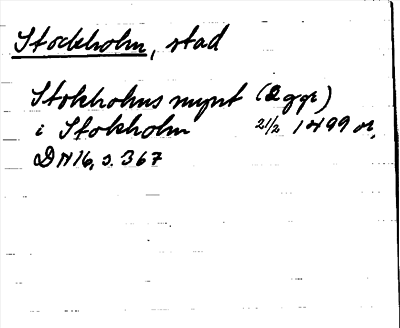 Stockholm, stad
Stokholms mynt (2 ggr)
i Stokholm 21/2 1499 or.
DN 16, s. 367